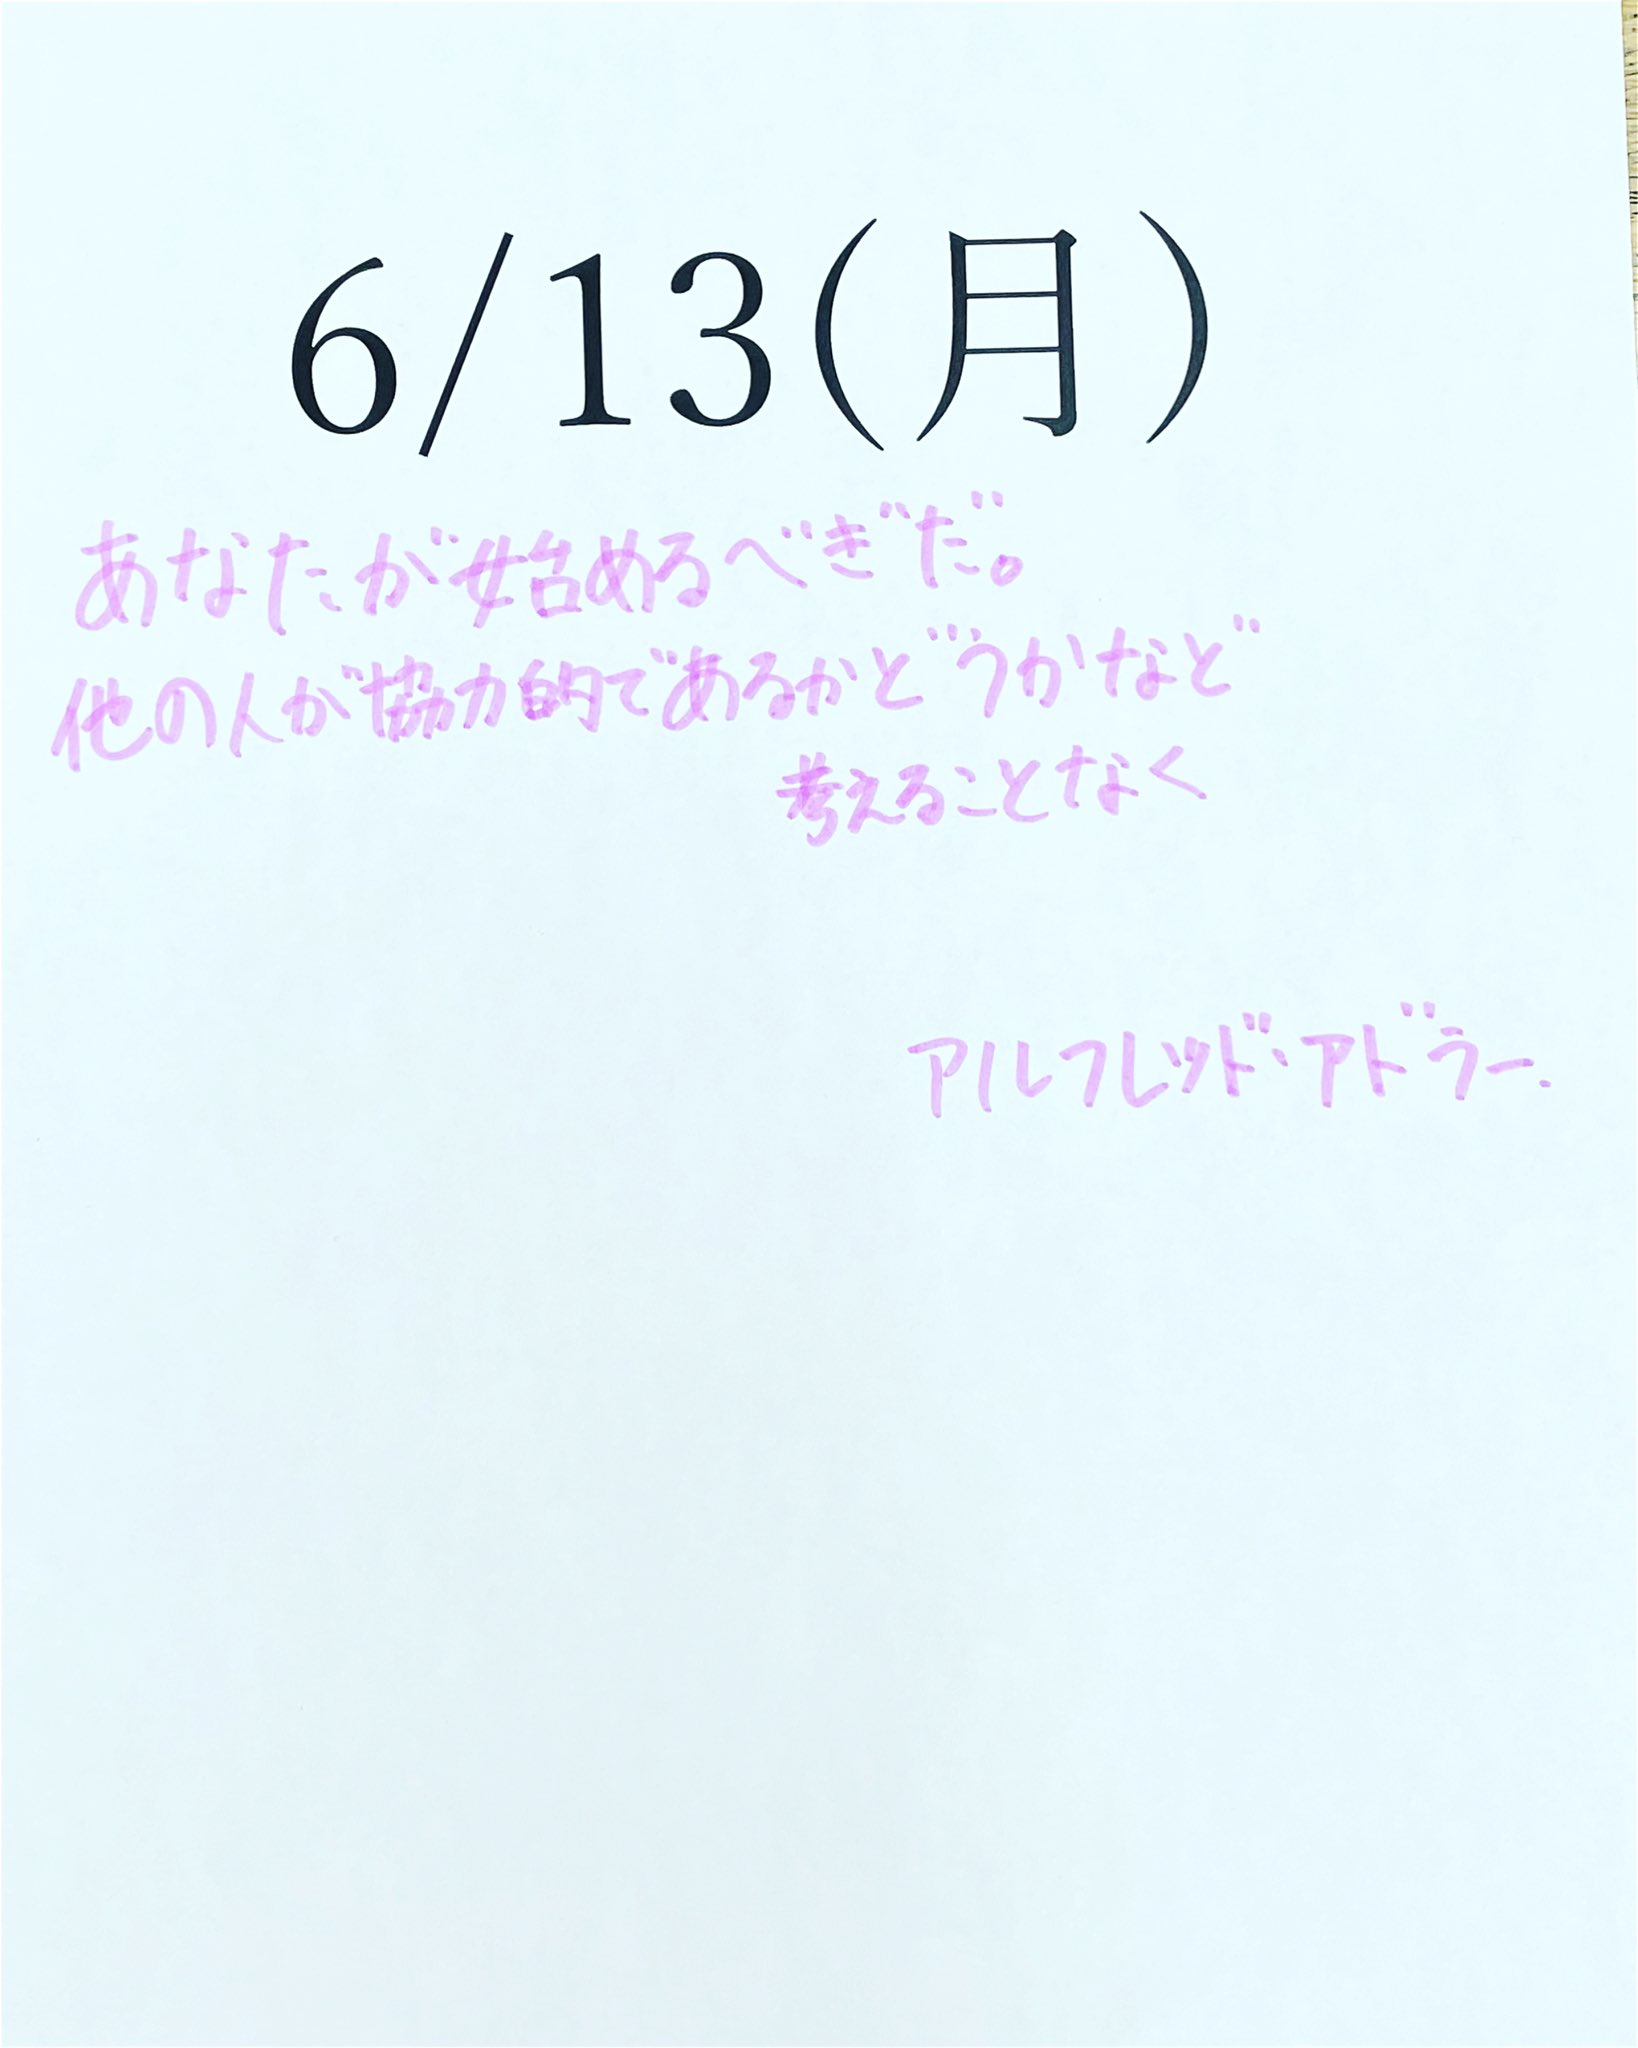 6/13(月)
あなたが始めるべぎだ。
他の人が協力的であるかどうかなど
考えることなく
アルフレッド・アドラー.